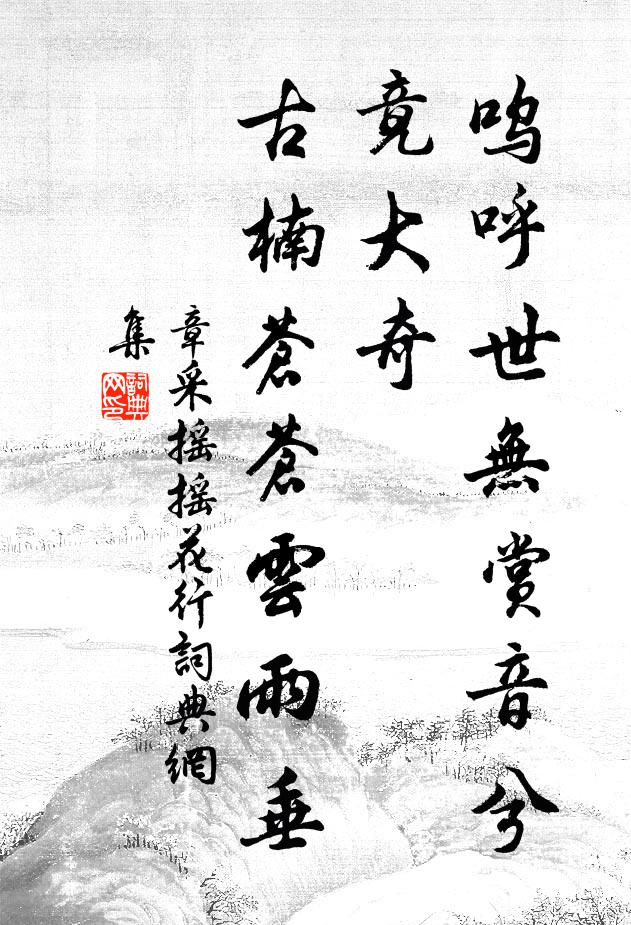 嗚呼世無賞音兮
竟大奇
古楠蒼蒼雲雨垂
章采摇摇花行詞典網
集
詞典
网印